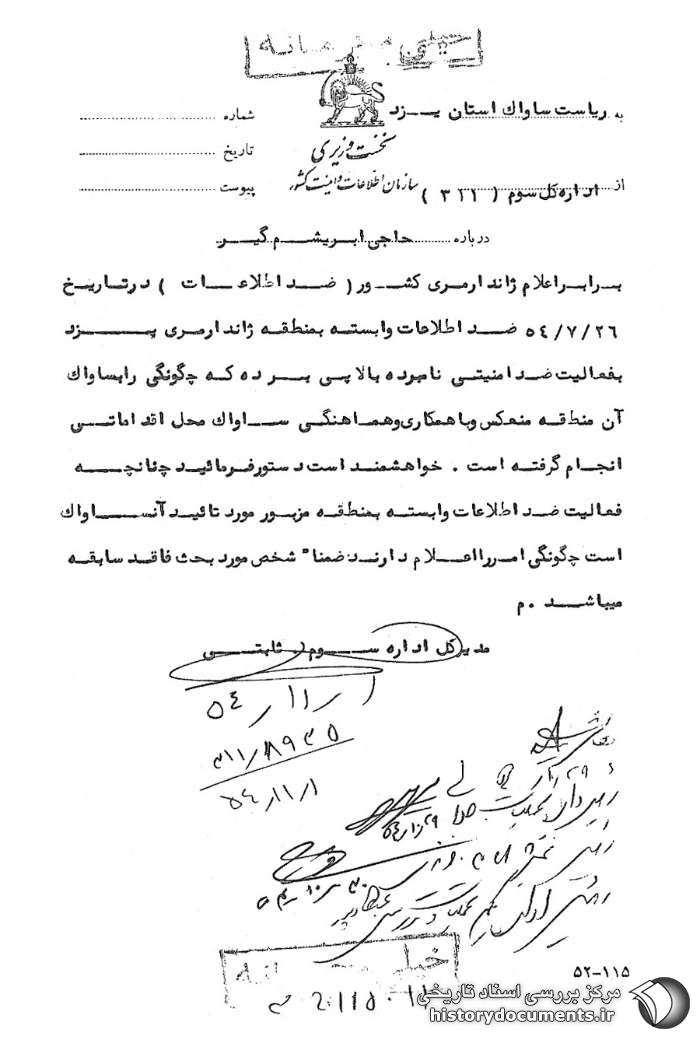 خیلی محرمانه
به ریاست ساواك استان یــزد
شماره
نخست وزیری
تاریخ
سازمان اطلاعات و امنیت کشور
از اداره کل سوم ( ۳۱۱ )
پیوست
درباره حاجی ابریشـم گیـر
بـرابـر اعلام ژاندارمری کشـور ( ضد اطلاعـات ) در تاریخ
۵۴/۷/۲۶ ضـد اطلاعات وابسته بمنطقـه ژاندارمری یـزد
بفعالیت ضد امنیتـی نامبرده بالا پـی بـرده کـه چگونگی را بساواك
آن منطقـه منعکس و با همکاری و هماهنگـی سـاواك محل اقداماتـی
انجـام گرفتـه است . خواهشمنـد است دستور فرمائیـد چنانچـه
فعالیت ضـد اطلاعات وابستـه بمنطقـه مزبـور مورد تائیـد آن سـاواك
است چگونگی امـر را اعـلام دارنـد ضمنا" شخص مورد بحث فاقـد سابقـه
میباشـد . م
مدیر کل اداره سـوم . ثابتـی
۵۴/۱۱/۱
۵۴/۱۱/۱
خیلی محرمانه
۵۲-۱۱۵
مرکز بررسی اسناد تاریخی
historydocuments.ir